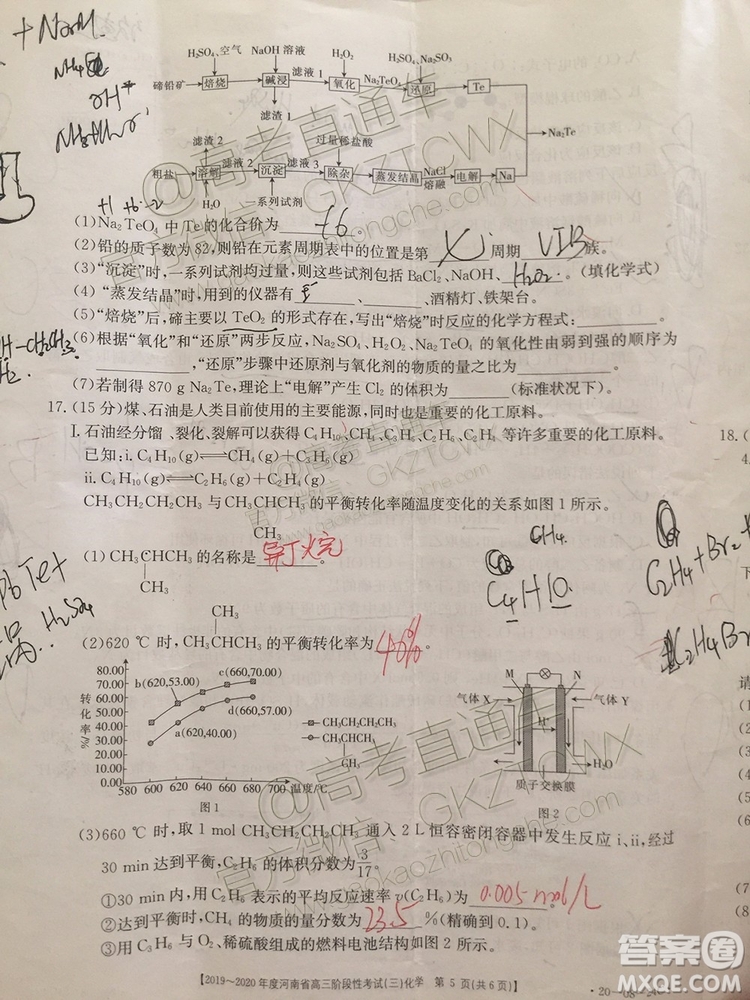 +Na2
H₂SO₄、空气 NaOH 溶液 H₂O₂ H₂SO₄、Na₂SO₃
碲铅矿 焙烧 碱浸 滤液 1 氧化 Na₂TeO₄ 还原 Te
滤渣 1
Na₂Te
滤渣 2 过量稀盐酸
粗盐 溶解 滤液 2 沉淀 滤液 3 除杂 蒸发结晶 NaCl 熔融 电解 Na
H₂O 一系列试剂
+1 +6 -2
(1)Na₂TeO₄ 中 Te 的化合价为 +6 。
(2)铅的质子数为 82,则铅在元素周期表中的位置是第 周期 VIB 族。
(3)“沉淀”时,一系列试剂均过量,则这些试剂包括 BaCl₂、NaOH、 H₂O₂ 。(填化学式)
(4)“蒸发结晶”时,用到的仪器有 、酒精灯、铁架台。
(5)“焙烧”后,碲主要以 TeO₂ 的形式存在,写出“焙烧”时反应的化学方程式:
(6)根据“氧化”和“还原”两步反应,Na₂SO₄、H₂O₂、Na₂TeO₄ 的氧化性由弱到强的顺序为
,“还原”步骤中还原剂与氧化剂的物质的量之比为 。
(7)若制得 870 g Na₂Te,理论上“电解”产生 Cl₂ 的体积为 (标准状况下)。
17.(15 分)煤、石油是人类目前使用的主要能源,同时也是重要的化工原料。
Ⅰ.石油经分馏、裂化、裂解可以获得 C₄H₁₀、CH₄、C₃H₆、C₂H₆、C₂H₄ 等许多重要的化工原料。
已知:ⅰ.C₄H₁₀(g)⇌CH₄(g)+C₃H₆(g)
ⅱ.C₄H₁₀(g)⇌C₂H₆(g)+C₂H₄(g)
CH₃CH₂CH₂CH₃ 与 CH₃CHCH₃ 的平衡转化率随温度变化的关系如图 1 所示。
CH₃
(1)CH₃CHCH₃ 的名称是 异丁烷 。
CH₃
CH4
C4H10
C2H4+Br2+
H₂SO4
CH₃
(2)620 ℃ 时,CH₃CHCH₃ 的平衡转化率为 40% 。
转化率/%
80.00
70.00
60.00
50.00
40.00
30.00
20.00
10.00
0.00
b(620,53.00)
c(660,70.00)
d(660,57.00)
a(620,40.00)
CH₃CH₂CH₂CH₃
CH₃CHCH₃
CH₃
580 600 620 640 660 680 700 温度/℃
图 1
M N
气体 X 气体 Y
H⁺
H₂O
质子交换膜
图 2
(3)660 ℃时,取 1 mol CH₃CH₂CH₂CH₃ 通入 2 L 恒容密闭容器中发生反应 ⅰ、ⅱ,经过
30 min 达到平衡,C₂H₆ 的体积分数为 3/17。
①30 min 内,用 C₂H₆ 表示的平均反应速率 v(C₂H₆)为 0.005 mol/L 。
②达到平衡时,CH₄ 的物质的量分数为 23.5 %(精确到 0.1)。
③用 C₃H₆ 与 O₂、稀硫酸组成的燃料电池结构如图 2
【2019~2020 年度河南省高三阶段性考试(三)化学 第 5 页(共 6 页)】
·20-08
18.(
@高考直通车
GKZTCWX
官方微信
gaokaozhitongche.com
答案圈
MXQE.COM